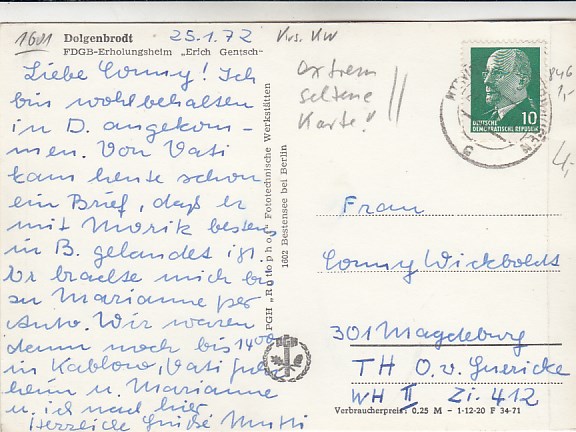 1601
Dolgenbrodt
25.1.72
Krs. KW
FDGB-Erholungsheim „Erich Gentsch“
Liebe Conny! Ich
bin wohlbehalten
in D. angekom-
men. Von Vati
kam heute schon
ein Brief, daß er
mit Morik bestens
in B. gelandet ist.
Er brachte mich bis
zu Marianne per
Auto. Wir waren
dann noch bis 14⁰⁰
in Kablow, Vati fuhr
heim u. Marianne
u. ich nach hier
Herzliche Grüße Mutti
extrem
seltene
Karte!
PGH „Rotophot“ Fototechnische Werkstätten
1602 Bestensee bei Berlin
10
DEUTSCHE
DEMOKRATISCHE REPUBLIK
846
1,-
4,-
Frau
Conny Wickboldt
301 Magdeburg
TH O.v. Guericke
WH II Zi. 412
Verbraucherpreis: 0,25 M - 1-12-20 F 34-71